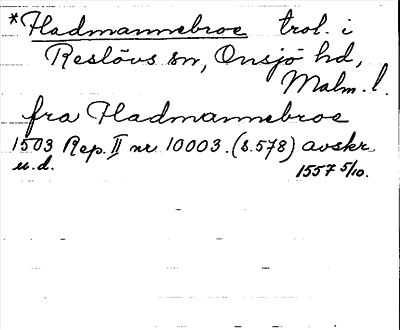 *Hadmannebroe trol. i
Reslövs sn, Onsjö hd,
Malm. l.
fra Hadmannebroe
1503 Rep. II nr 10003. (s. 578) avskr.
u. d. 1557 5/10.